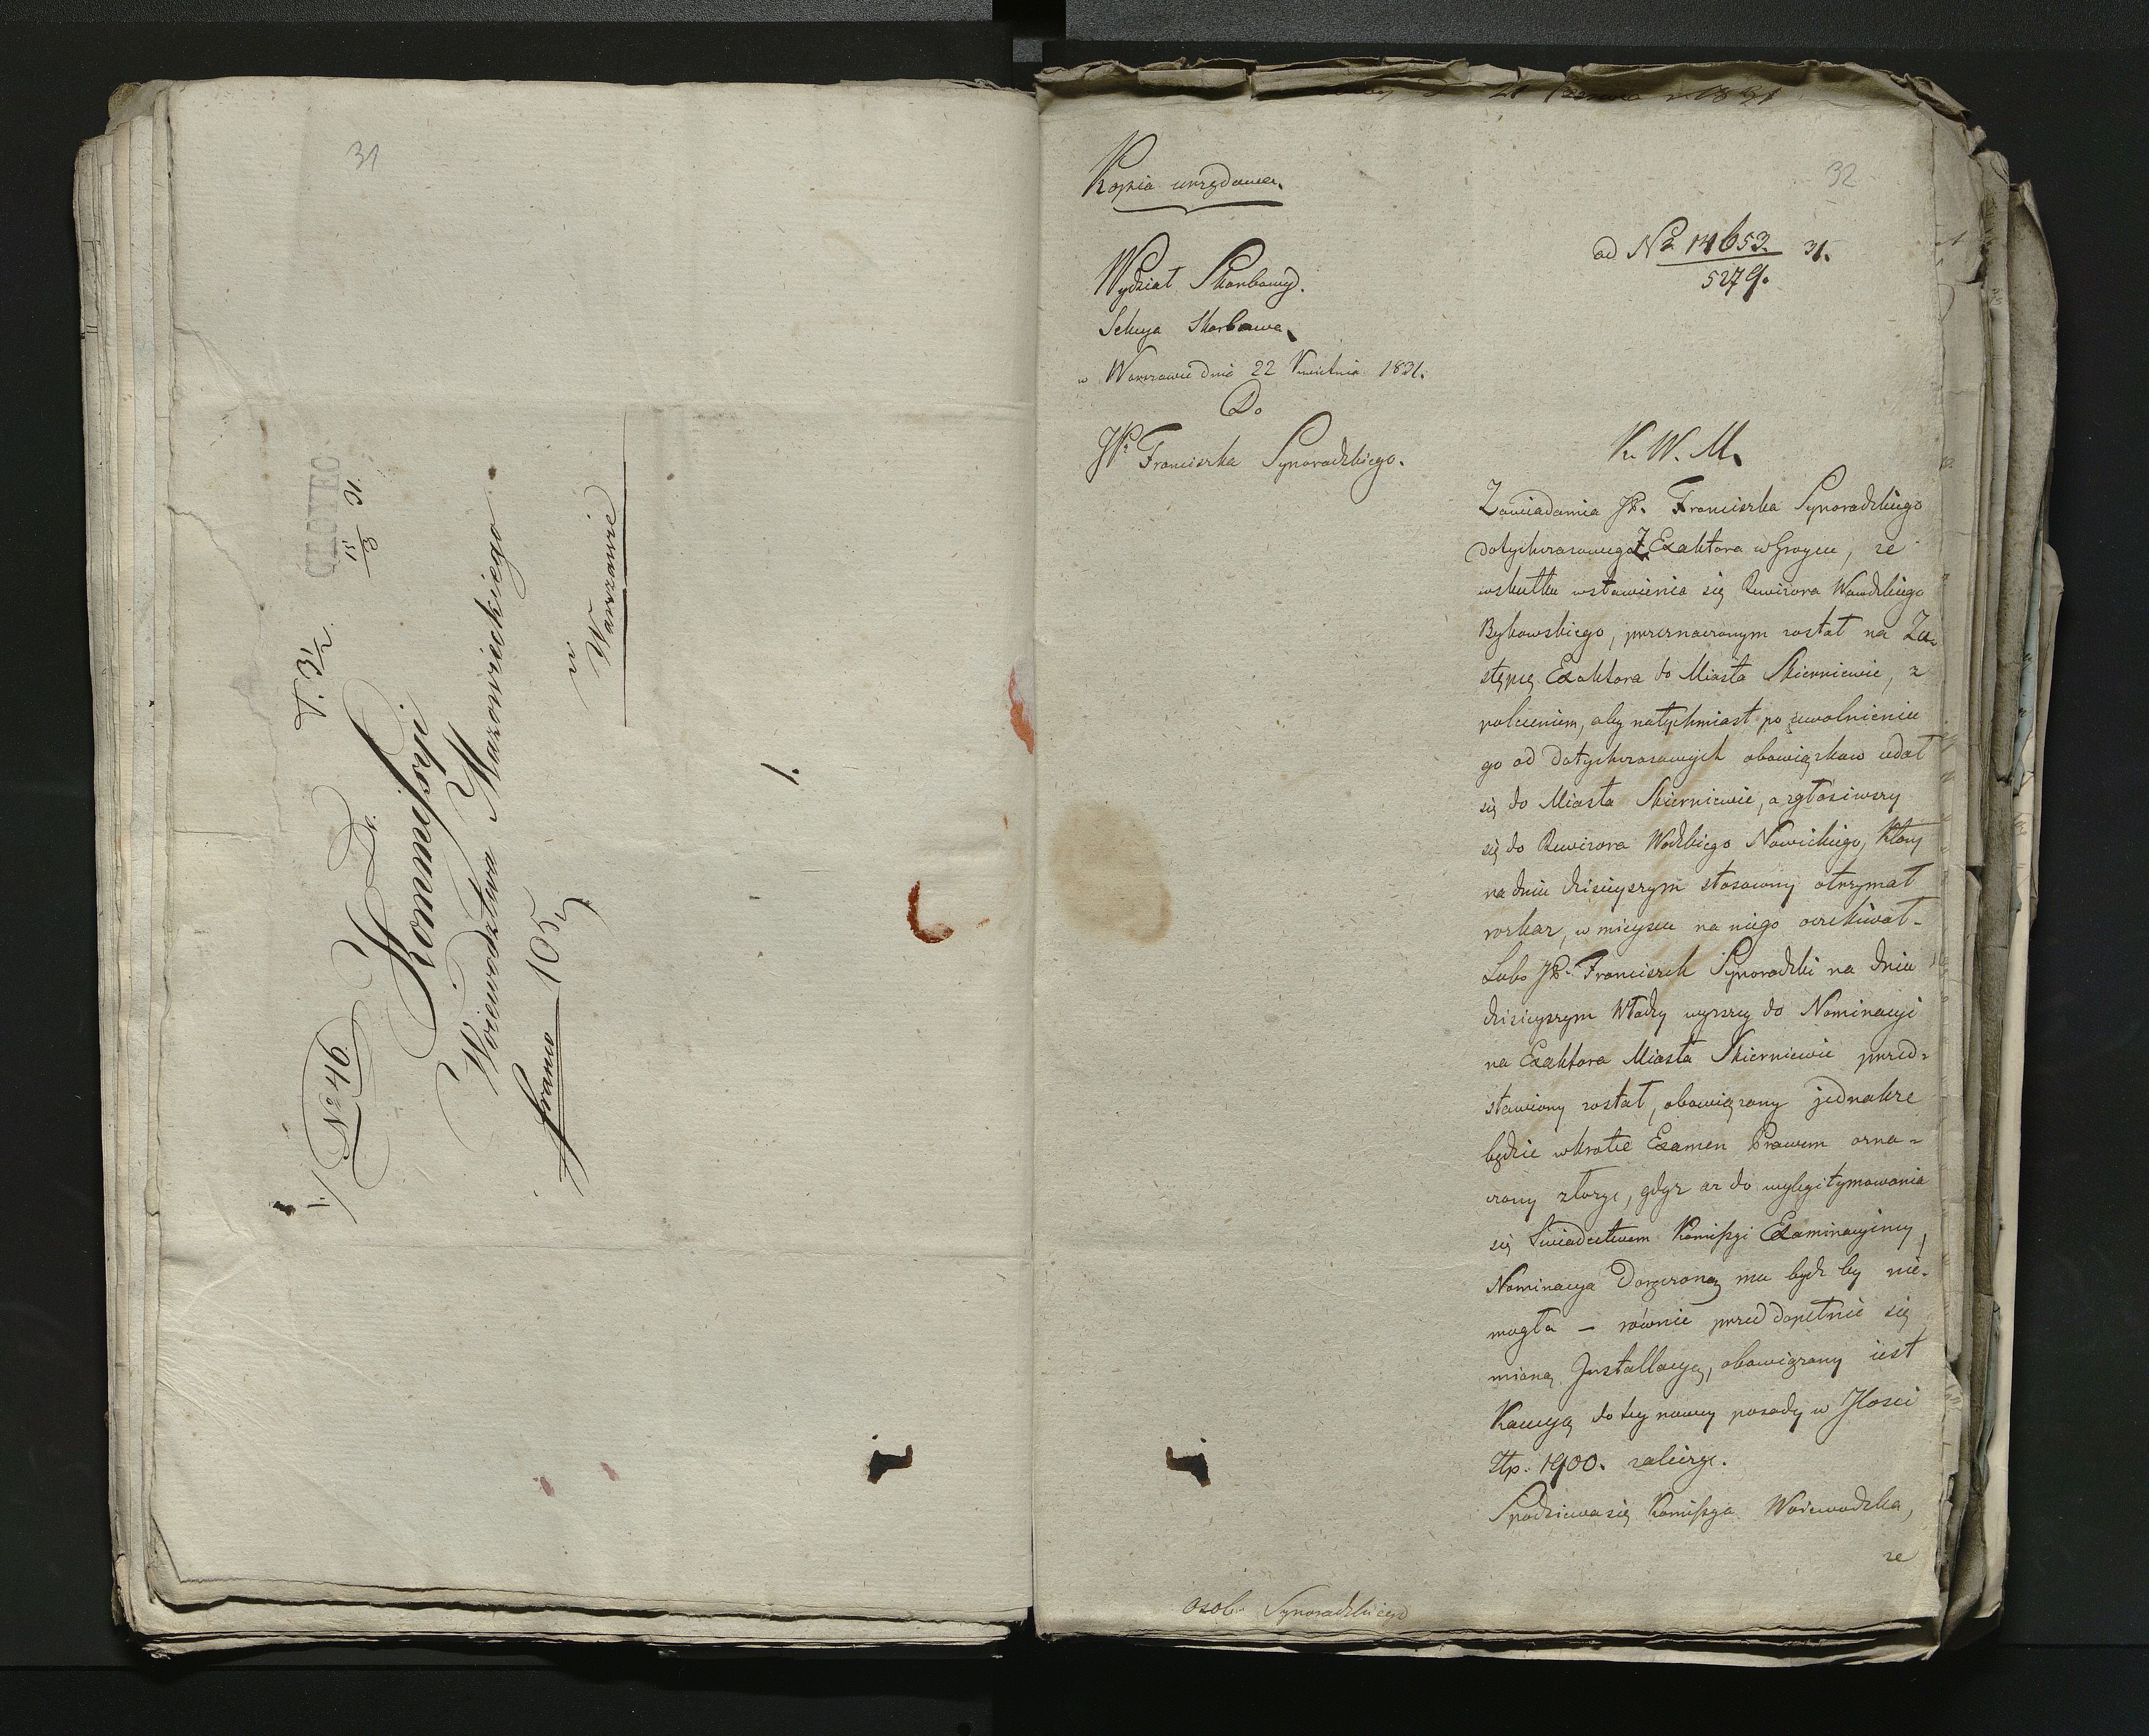 31
V. 3 1/2
15/3 31.
1.) No 46.
Do
Kommissyi
Woiewodztwa Mazowieckiego
franco 105
w
Warszawie
1.
32
Kopia urzędowa.
ad No 14653. 31.
5279.
Wydział Skarbowy.
Sekcya Skarbowa.
w Warszawie dnia 22 Kwietnia 1831.
Do
JP. Franciszka Synoradzkiego.
K. W. M.
Zawiadamia JP. Franciszka Synoradzkiego
dotychczasowego Z Exaktora w Groycu, ze
wskutku wstawienia się Rewizora Wowdzkiego
Bykowskiego, przeznaczonym został na Za-
stępcę Exaktora do Miasta Skierniewic, z
poleceniem, aby natychmiast po uwolnieniu
go od dotychczasowych obowiązkow udał
się do Miasta Skierniewic, a zgłosiwszy
się do Rewizora Wodzkiego Nowickiego, ktory
na dniu dzisieyszym stosowny otrzymał
rozkaz, w mieyscu na niego oczekiwał -
Lubo JP. Franciszek Synoradzki na dniu
dzisieyszym Władzy wyzszey do Nominacyi
na Exaktora Miasta Skierniewic przed-
stawiony został, obowiązany jednakze
będzie wkrotce Examen Prawem ozna-
czony złozyc, gdyz az do wylegitymowania
się Swiadectwem Komissyi Examinacyiney,
Nominacya Doręczoną mu bydz by nie-
mogła - równie przed dopełnić się
mianą Installacyą, obowiązany iest
Kaucyą do tey nowey posady w Jlosci
Złp. 1900. zaliczyc.
Spodziewa się Komissya Woiewodzka,
ze
osob Synoradzkiego